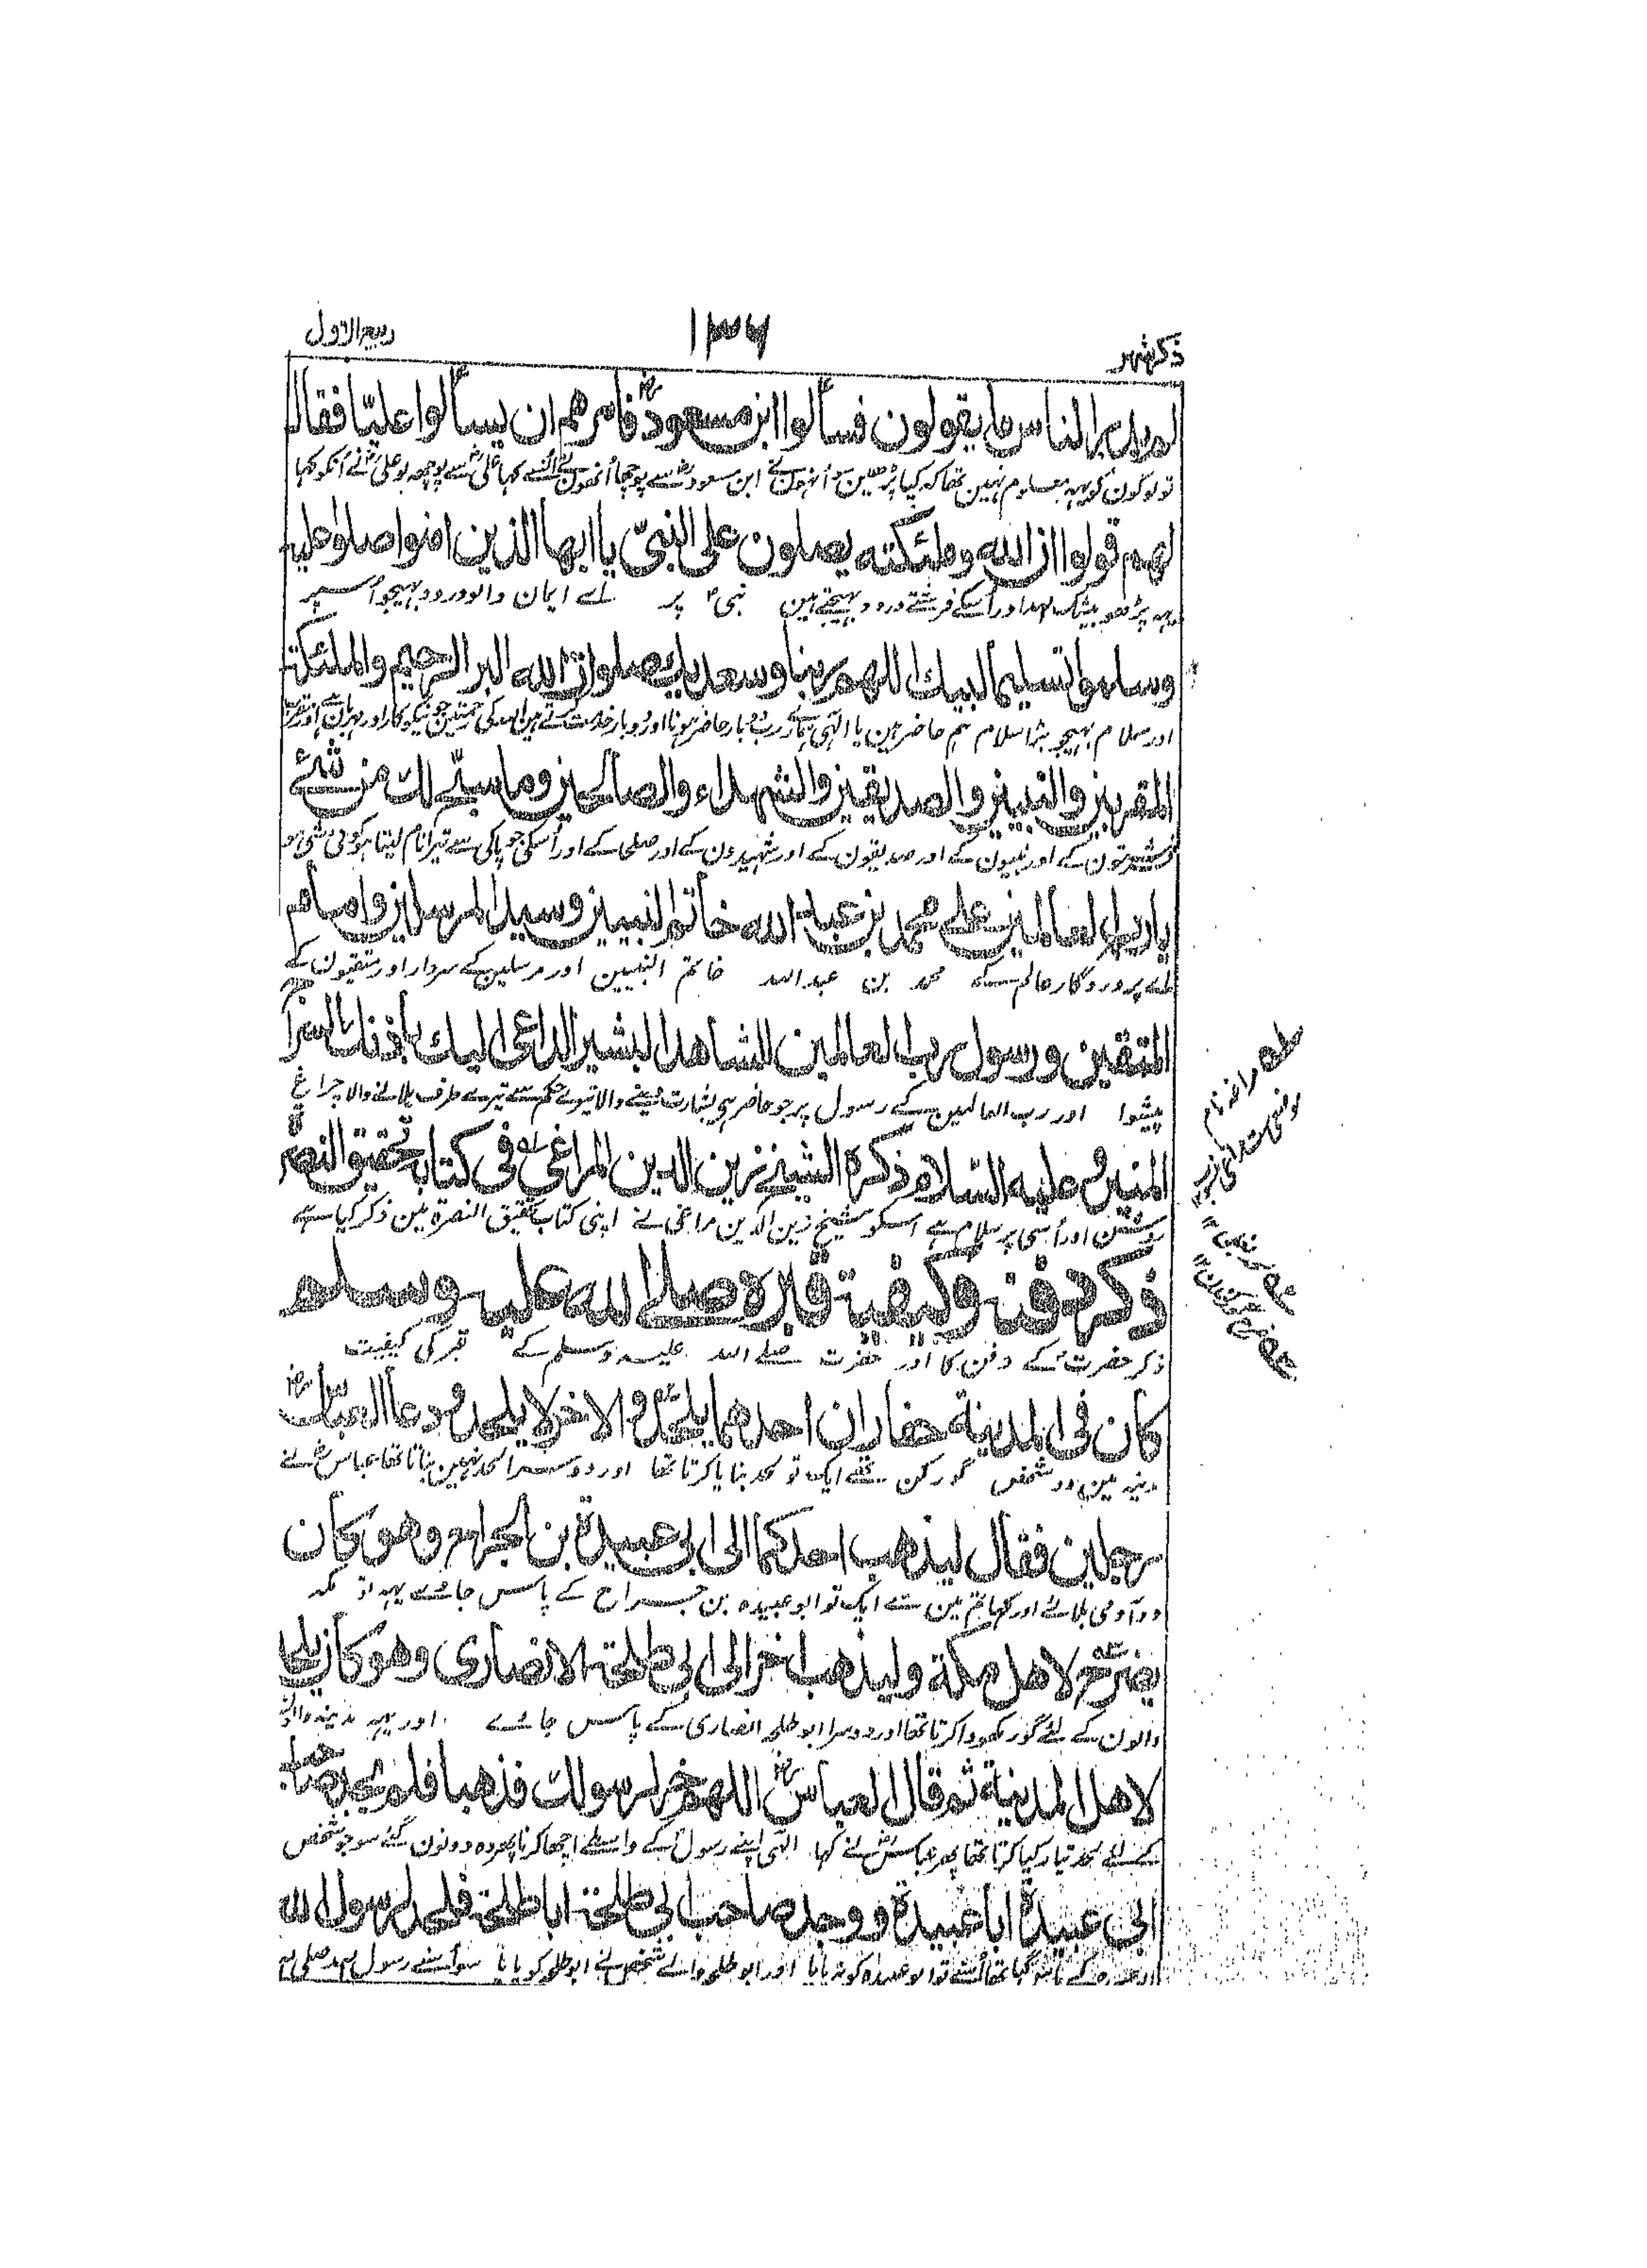 ذکر شہر
۱۳۶
ربیع الاول
لم يدر الناس ما يقولون فسألوا ابن مسعودؓ فامرهم ان يسألوا عليّا فقال
تو لوگون کو یہہ معلوم نہین تھا کہ کیا پڑھین سو اُنہون نے ابن مسعودؓ سے پوچھا اُنھون نے اُنسے کہا علیؓ سے پوچھو علیؓ نے اُنکو کہا
لهم قولوا ان الله وملئكته يصلون على النبيّ يا ايها الذين امنوا صلوا عليه
یہہ پڑھو بیشک اللہ اور اُسکے فرشتے درود بہیجتے ہین نبیؐ پر اے ایمان والو درود بہیجو اُسپر
وسلموا تسليما لبيك اللهم ربنا وسعديك صلوات الله البر الرحيم والملئكة
اور سلام بہیجو بڑا سلام ہم حاضر ہین یا الٰہی ہمارے رب
المقربين والنبيين والصديقين والشهداء والصالحين وما سبّح لك من شئ
فرشتون کے اور نبیون کے اور صدیقون کے اور شہیدون کے اور صلحا کے اور اُسکی جو پاکی سے تیرا نام لیتا ہو کوئی شی ہو
يا رب العالمين على محمد بن عبد الله خاتم النبيين وسيد المرسلين وامام
اے پروردگار عالم کے محمد بن عبد اللہ خاتم النبیین اور مرسلین کے سردار اور متقیون کے
المتقين ورسول رب العالمين الشاهد البشير الداعى اليك باذنك السراج
پیشوا اور رب العالمین کے رسول پر جو حاضر ہی بشارت دینے والا تیرے حکم سے تیرے طرف بلانے والا چراغ
المنير وعليه السلام ذكره الشيخ زين الدين المراغى فى كتابه تحقيق النصرة
روشن اور اُسی پر سلام ہے اسکو شیخ زین الدین مراغی نے اپنی کتاب تحقیق النصرۃ مین ذکر کیا ہے
ذكر دفنه وكيفية قبره صلى الله عليه وسلم
ذکر حضرتؐ کے دفن کا اور حضرت صلے اللہ علیہ وسلم کے قبر کی کیفیت
كان فى المدينة حفاران احدهما يلحد والاخر لا يلحد ودعا العباسؓ
مدینہ مین دو شخص گورکن تھے ایک تو لحد بنایا کرتا تھا اور دوسرا لحد نہین بناتا تھا عباسؓ نے
رجلين فقال ليذهب احدكما الى ابى عبيدة بن الجراح وهو كان
دو آدمی بلائے اور کہا تم مین سے ایک تو ابو عبیدہ بن جراح کے پاس جائے یہہ تو مکہ
يضرح لاهل مكة وليذهب اخر الى ابى طلحة الانصارى وهو كان يلحد
والون کے لئے گور کھودا کرتا تھا اور دوسرا ابو طلحہ انصاری کے پاس جائے اور یہہ مدینہ والون
لاهل المدينة ثم قال العباسؓ اللهم خر لرسولك فذهبا فلم يجد صاحب
کے لئے لحد تیار کیا کرتا تھا پھر عباسؓ نے کہا الٰہی اپنے رسولؐ کے واسطے اچھا کرنا پھر وہ دونون گئے سو جو شخص
ابى عبيدة ابا عبيدة ووجد صاحب ابى طلحة ابا طلحة فلحد لرسول الله
ابو عبیدہ کے پاس گیا تھا اُسنے تو ابو عبیدہ کو نہ پایا اور ابو طلحہ والے شخص نے ابو طلحہ کو پایا سو اُسنے رسول اللہ صلی اللہ